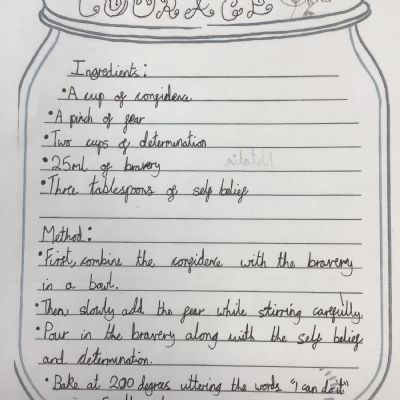 COURAGE
Ingredients:
• A cup of confidence
• A pinch of fear
• Two cups of determination
• 25ml of bravery
• Three tablespoons of self belief
Method:
• First, combine the confidence with the bravery
in a bowl.
• Then, slowly add the fear while stirring carefully.
• Pour in the bravery along with the self belief
and determination.
• Bake at 200 degrees uttering the words "I can do it"